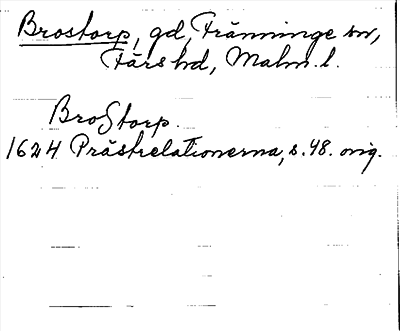 Brostorp, gd, Tränninge sn,
Färs hd, Malm. l.
BroStorp.
1624 Prästrelationerna, s. 48. orig.